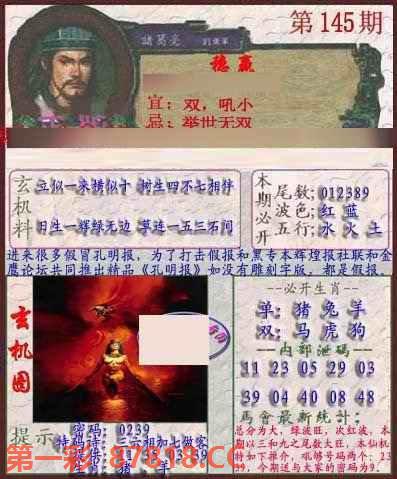 第145期
諸葛亮
稳赢
宜：双，吼小
忌：举世无双
玄机料
立似一来横似十 树生四不七相伴
日生一辉绿无边 草连一五三石间
本期必开
尾数：012389
波色：红 蓝
五行：水 火 土
进来很多假冒孔明报，为了打击假报和黑专本辉煌报社联和金
鹰论坛共同推出精品《孔明报》如没有雕刻字版，都是假报。
玄机图
--必开生肖--
单：猪 兔 羊
双：马 虎 狗
--内部泄码--
11 23 05 29 03
39 04 40 08 48
马會最新統计：
总分为大，绿波旺，次红波，本
期以三和九之尾数大旺，本仙机
特如下推介，吼够号码两个：23
99，今期送与大家的密码为9。
提示
密码：0239
特码诗：三六相加七做客
第一彩：87818.CC